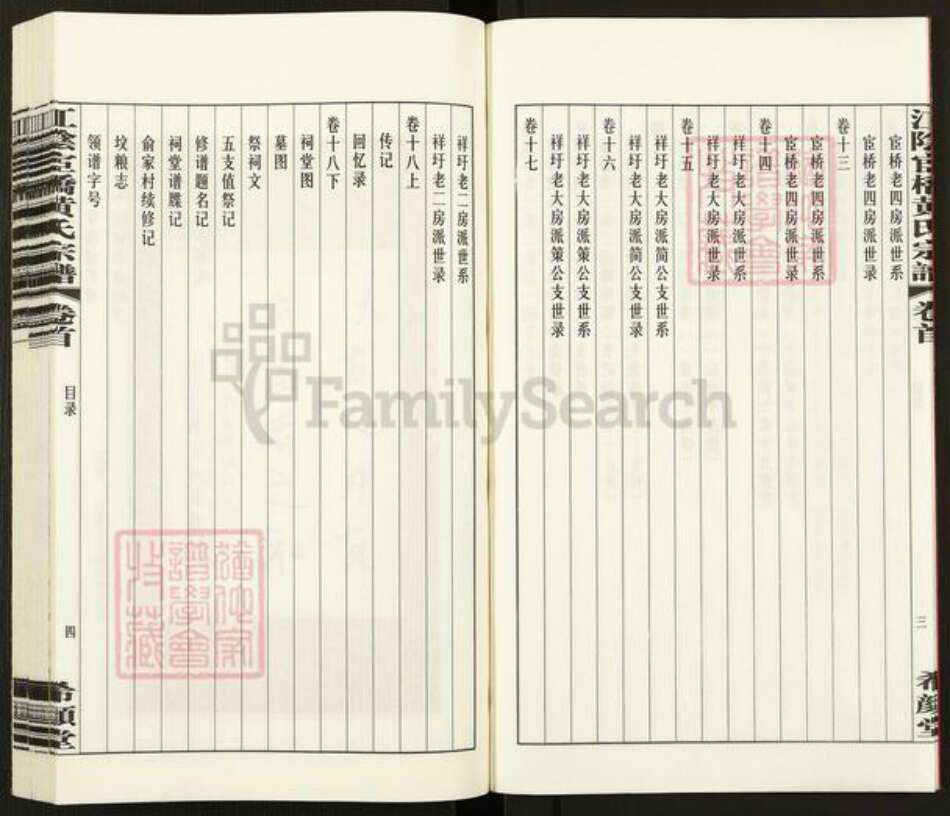 江陰官橋黄氏宗譜
卷首
三
希顔堂
宦桥老四房派世系
宦桥老四房派世录
卷十三
宦桥老四房派世系
宦桥老四房派世录
卷十四
祥圩老大房派世系
祥圩老大房派世录
卷十五
祥圩老大房派简公支世系
祥圩老大房派简公支世录
卷十六
祥圩老大房派策公支世系
祥圩老大房派策公支世录
卷十七
祥圩老二房派世系
祥圩老二房派世录
卷十八上
传记
回忆录
卷十八下
祠堂图
墓图
祭祠文
五支值祭记
修谱题名记
祠堂谱牒记
俞家村续修记
坟粮志
领谱字号
江陰官橋黄氏宗譜
卷首
目录
四
希顔堂
譜學會
收藏
FamilySearch